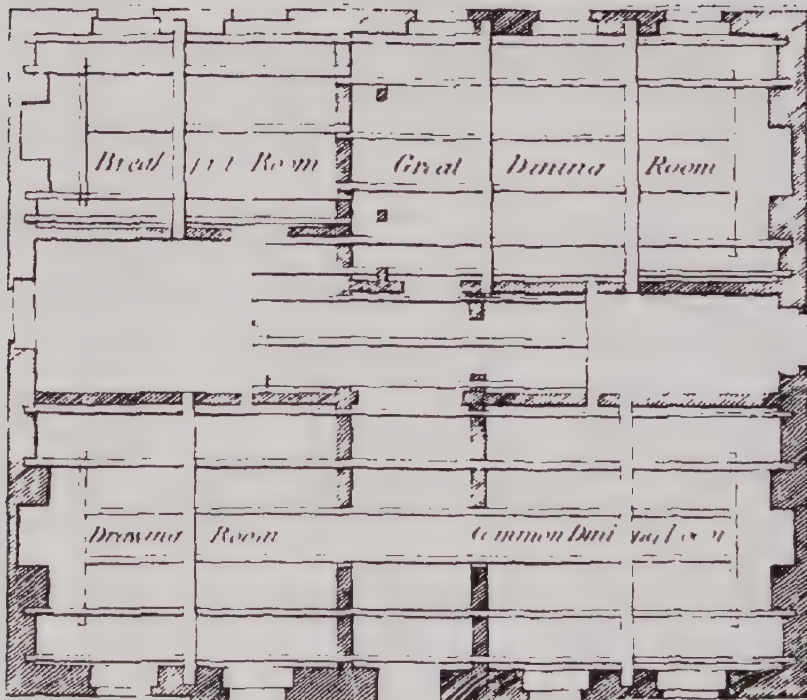 Breakfast Room
Great Dining Room
Drawing Room
Common Dining Room